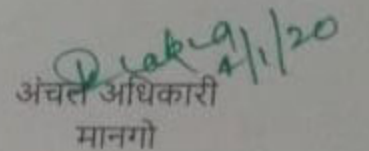 4/1/20
अंचल अधिकारी
मानगो